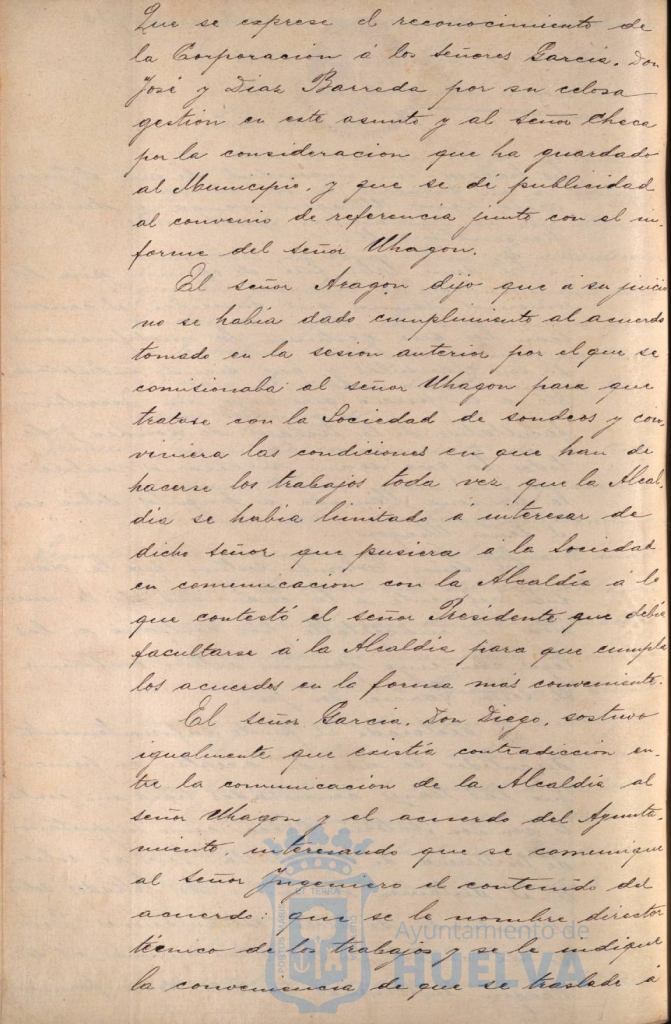 Que se exprese el reconocimiento de
la Corporación á los señores Garcia, Don
José y Diaz Barreda por su celosa
gestion en este asunto y al señor Checa
por la consideracion que ha guardado
al Municipio, y que se dé publicidad
al convenio de referencia junto con el in-
forme del señor Uhagon.
El señor Aragon dijo que á su juicio
no se habia dado cumplimiento al acuerdo
tomado en la sesion anterior por el que se
comisionaba al señor Uhagon para que
tratase con la Sociedad de sondeos y con
viniera las condiciones en que han de
hacerse los trabajos toda vez que la Alcal-
dia se habia limitado á interesar de
dicho señor que pusiera á la Sociedad
en comunicacion con la Alcaldia á lo
que contestó el señor Presidente que debia
facultarse á la Alcaldia para que cumpla
los acuerdos en la forma más conveniente.
El señor Garcia, Don Diego, sostuvo
igualmente que existia contradiccion en-
tre la comunicacion de la Alcaldia al
señor Uhagon y el acuerdo del Ayunta-
miento interesando que se comunique
al señor Ingeniero el contenido del
acuerdo: que se le nombre director
técnico de los trabajos y se le indique
la conveniencia de que se traslade á
Ayuntamiento de
HUELVA